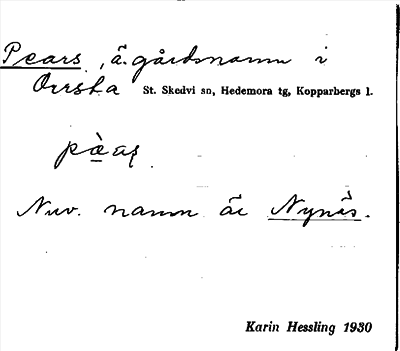 Pears, ä. gårdsnamn i
Orrsta St. Skedvi sn, Hedemora tg, Kopparbergs l.
Nuv. namn är Nynäs.
Karin Hessling 1930